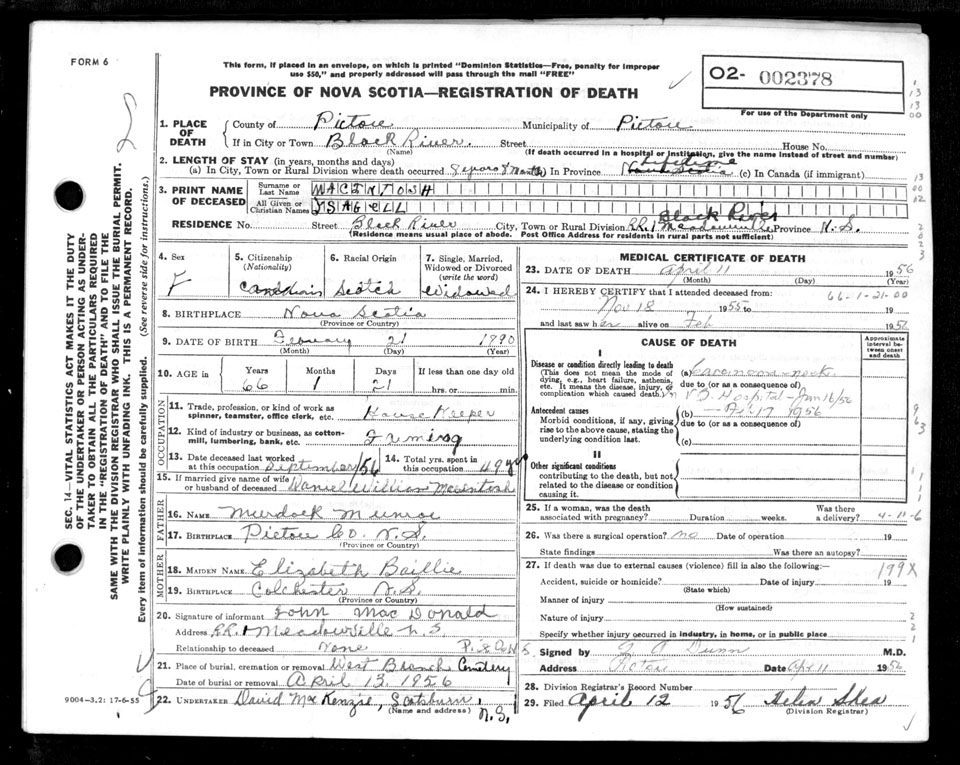 FORM 6
This form, if placed in an envelope, on which is printed "Dominion Statistics—Free, penalty for improper
use $50," and properly addressed will pass through the mail "FREE"
PROVINCE OF NOVA SCOTIA—REGISTRATION OF DEATH
02- 002378
For use of the Department only
1. PLACE OF DEATH
County of Pictou Municipality of Pictou
If in City or Town Black River Street House No.
(Name) (If death occurred in a hospital or institution, give the name instead of street and number)
2. LENGTH OF STAY (in years, months and days)
(a) In City, Town or Rural Division where death occurred 8 years 8 Months In Province Lifetime Nova Scotia (c) In Canada (if immigrant)
3. PRINT NAME OF DECEASED
Surname or Last Name MACINTOSH
All Given or Christian Names ISABELL
RESIDENCE No. Street Black River City, Town or Rural Division Black River RR 1 Meadowville Province N.S.
(Residence means usual place of abode. Post Office Address for residents in rural parts not sufficient)
4. Sex
F
5. Citizenship
(Nationality)
Canadian
6. Racial Origin
Scotch
7. Single, Married,
Widowed or Divorced
(write the word)
Widowed
8. BIRTHPLACE Nova Scotia
(Province or Country)
9. DATE OF BIRTH February 21 1890
(Month) (Day) (Year)
10. AGE in Years Months Days If less than one day old
66 1 21 hrs. or min.
OCCUPATION
11. Trade, profession, or kind of work as
spinner, teamster, office clerk, etc. House Keeper
12. Kind of industry or business, as cotton-
mill, lumbering, bank, etc. Farming
13. Date deceased last worked
at this occupation September/56
14. Total yrs. spent in
this occupation 49 yrs
15. If married give name of wife
or husband of deceased Daniel William MacIntosh
FATHER
16. NAME Murdock Munroe
17. BIRTHPLACE Pictou Co. N.S.
(Province or Country)
MOTHER
18. MAIDEN NAME Elizabeth Baillie
19. BIRTHPLACE Colchester N.S.
(Province or Country)
20. Signature of informant John MacDonald
Address R.R. 1 Meadowville N.S
Relationship to deceased None
21. Place of burial, cremation or removal West Branch Cemetery
Date of burial or removal April 13, 1956
22. UNDERTAKER David MacKenzie, Scotsburn, N.S.
(Name and address)
MEDICAL CERTIFICATE OF DEATH
23. DATE OF DEATH April 11 1956
(Month) (Day) (Year)
24. I HEREBY CERTIFY that I attended deceased from 66-1-21-00
Nov 18 1955 to
and last saw her alive on Feb 1956
CAUSE OF DEATH
Approximate interval between onset and death
I
Disease or condition directly leading to death
(This does not mean the mode of
dying, e.g., heart failure, asthenia,
etc. It means the disease, injury, or
complication which caused death.)
(a) Carcinoma neck
due to (or as a consequence of)
Hospital - Jan 16/56
Antecedent causes
Morbid conditions, if any, giving
rise to the above cause, stating the
underlying condition last.
(b) 17 1956
due to (or as a consequence of)
(c)
II
Other significant conditions
contributing to the death, but not
related to the disease or condition
causing it.
25. If a woman, was the death
associated with pregnancy? Duration weeks. Was there a delivery? 4-11-6
26. Was there a surgical operation? no Date of operation 19
State findings Was there an autopsy?
27. If death was due to external causes (violence) fill in also the following:— 199X
Accident, suicide or homicide? Date of injury 19
(State which)
Manner of injury
(How sustained)
Nature of injury
Specify whether injury occurred in industry, in home, or in public place
Signed by Dunn M.D.
Address Pictou Date Apr 11 1956
28. Division Registrar's Record Number
29. Filed April 12 1956 Helen Shea
(Division Registrar)
SEC. 14—VITAL STATISTICS ACT MAKES IT THE DUTY
OF THE UNDERTAKER OR PERSON ACTING AS UNDER-
TAKER TO OBTAIN ALL THE PARTICULARS REQUIRED
IN THE "REGISTRATION OF DEATH" AND TO FILE THE
SAME WITH THE DIVISION REGISTRAR WHO SHALL ISSUE THE BURIAL PERMIT.
WRITE PLAINLY WITH UNFADING INK. THIS IS A PERMANENT RECORD.
Every item of information should be carefully supplied. (See reverse side for instructions.)
9004-3.2: 17-6-55